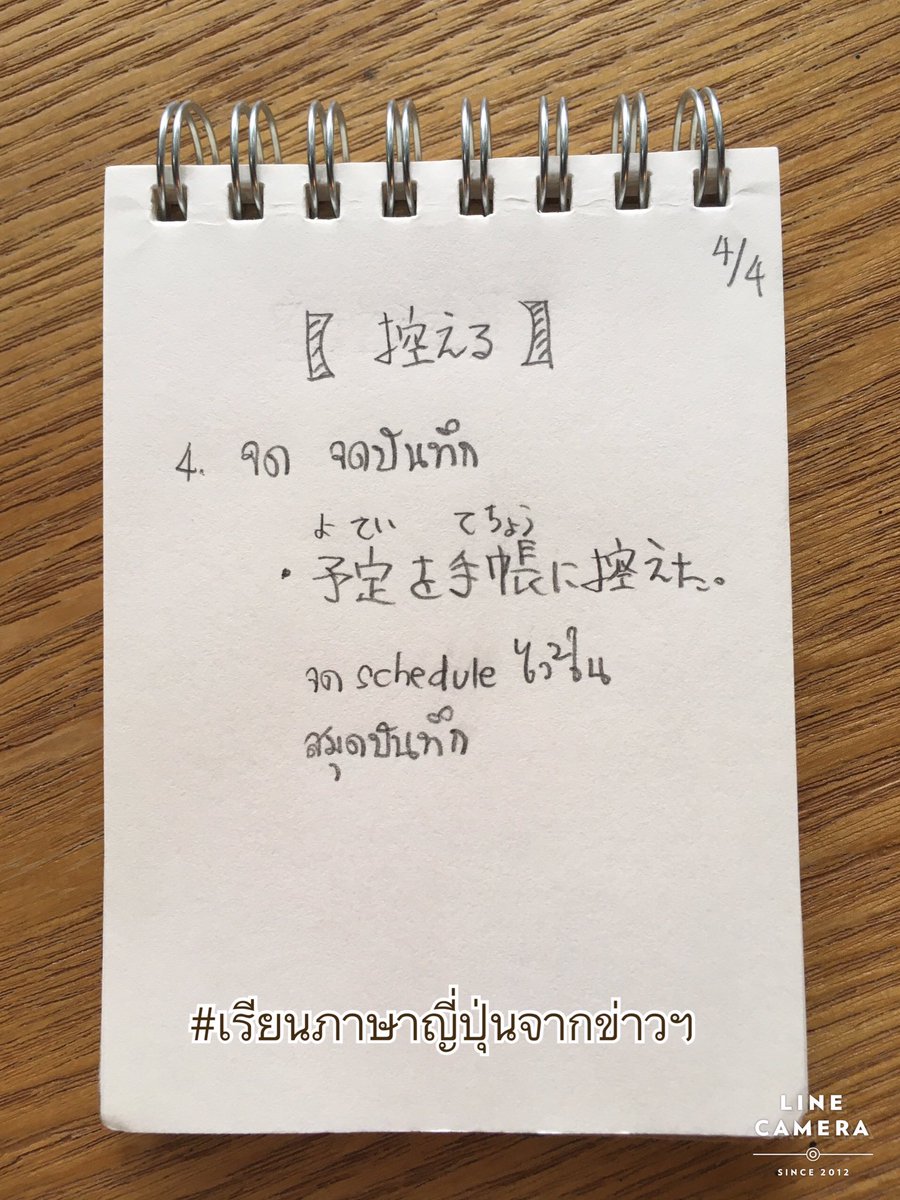 4/4
【 控える 】
4. จด จดบันทึก
よてい てちょう
・予定を手帳に控えた。
จด schedule ไว้ใน
สมุดบันทึก
#เรียนภาษาญี่ปุ่นจากข่าวฯ
LINE
CAMERA
SINCE 2012